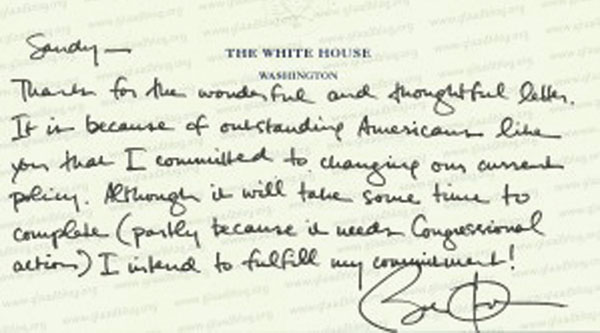 Sandy—
THE WHITE HOUSE
WASHINGTON
Thanks for the wonderful and thoughtful letter.
It is because of outstanding Americans like
you that I committed to changing our current
policy. Although it will take some time to
complete (partly because it needs Congressional
action) I intend to fulfill my commitment!
www.glaadblog.org